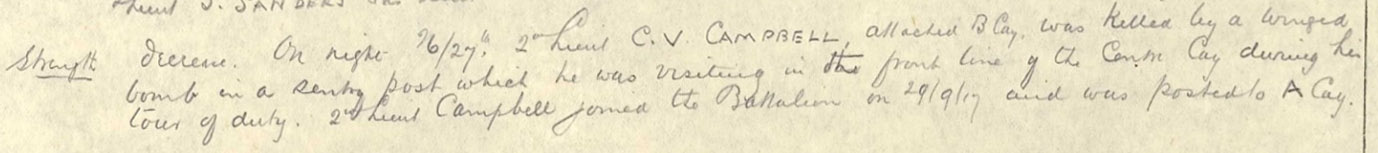 Lieut J. SANDERS
Strength decrease. On night 26/27th. 2nd Lieut C.V. CAMPBELL, attached B Coy. was killed by a winged
bomb in a sentry post which he was visiting in the front line of the Centre Coy during his
tour of duty. 2nd Lieut Campbell joined the Battalion on 29/9/17 and was posted to A Coy.